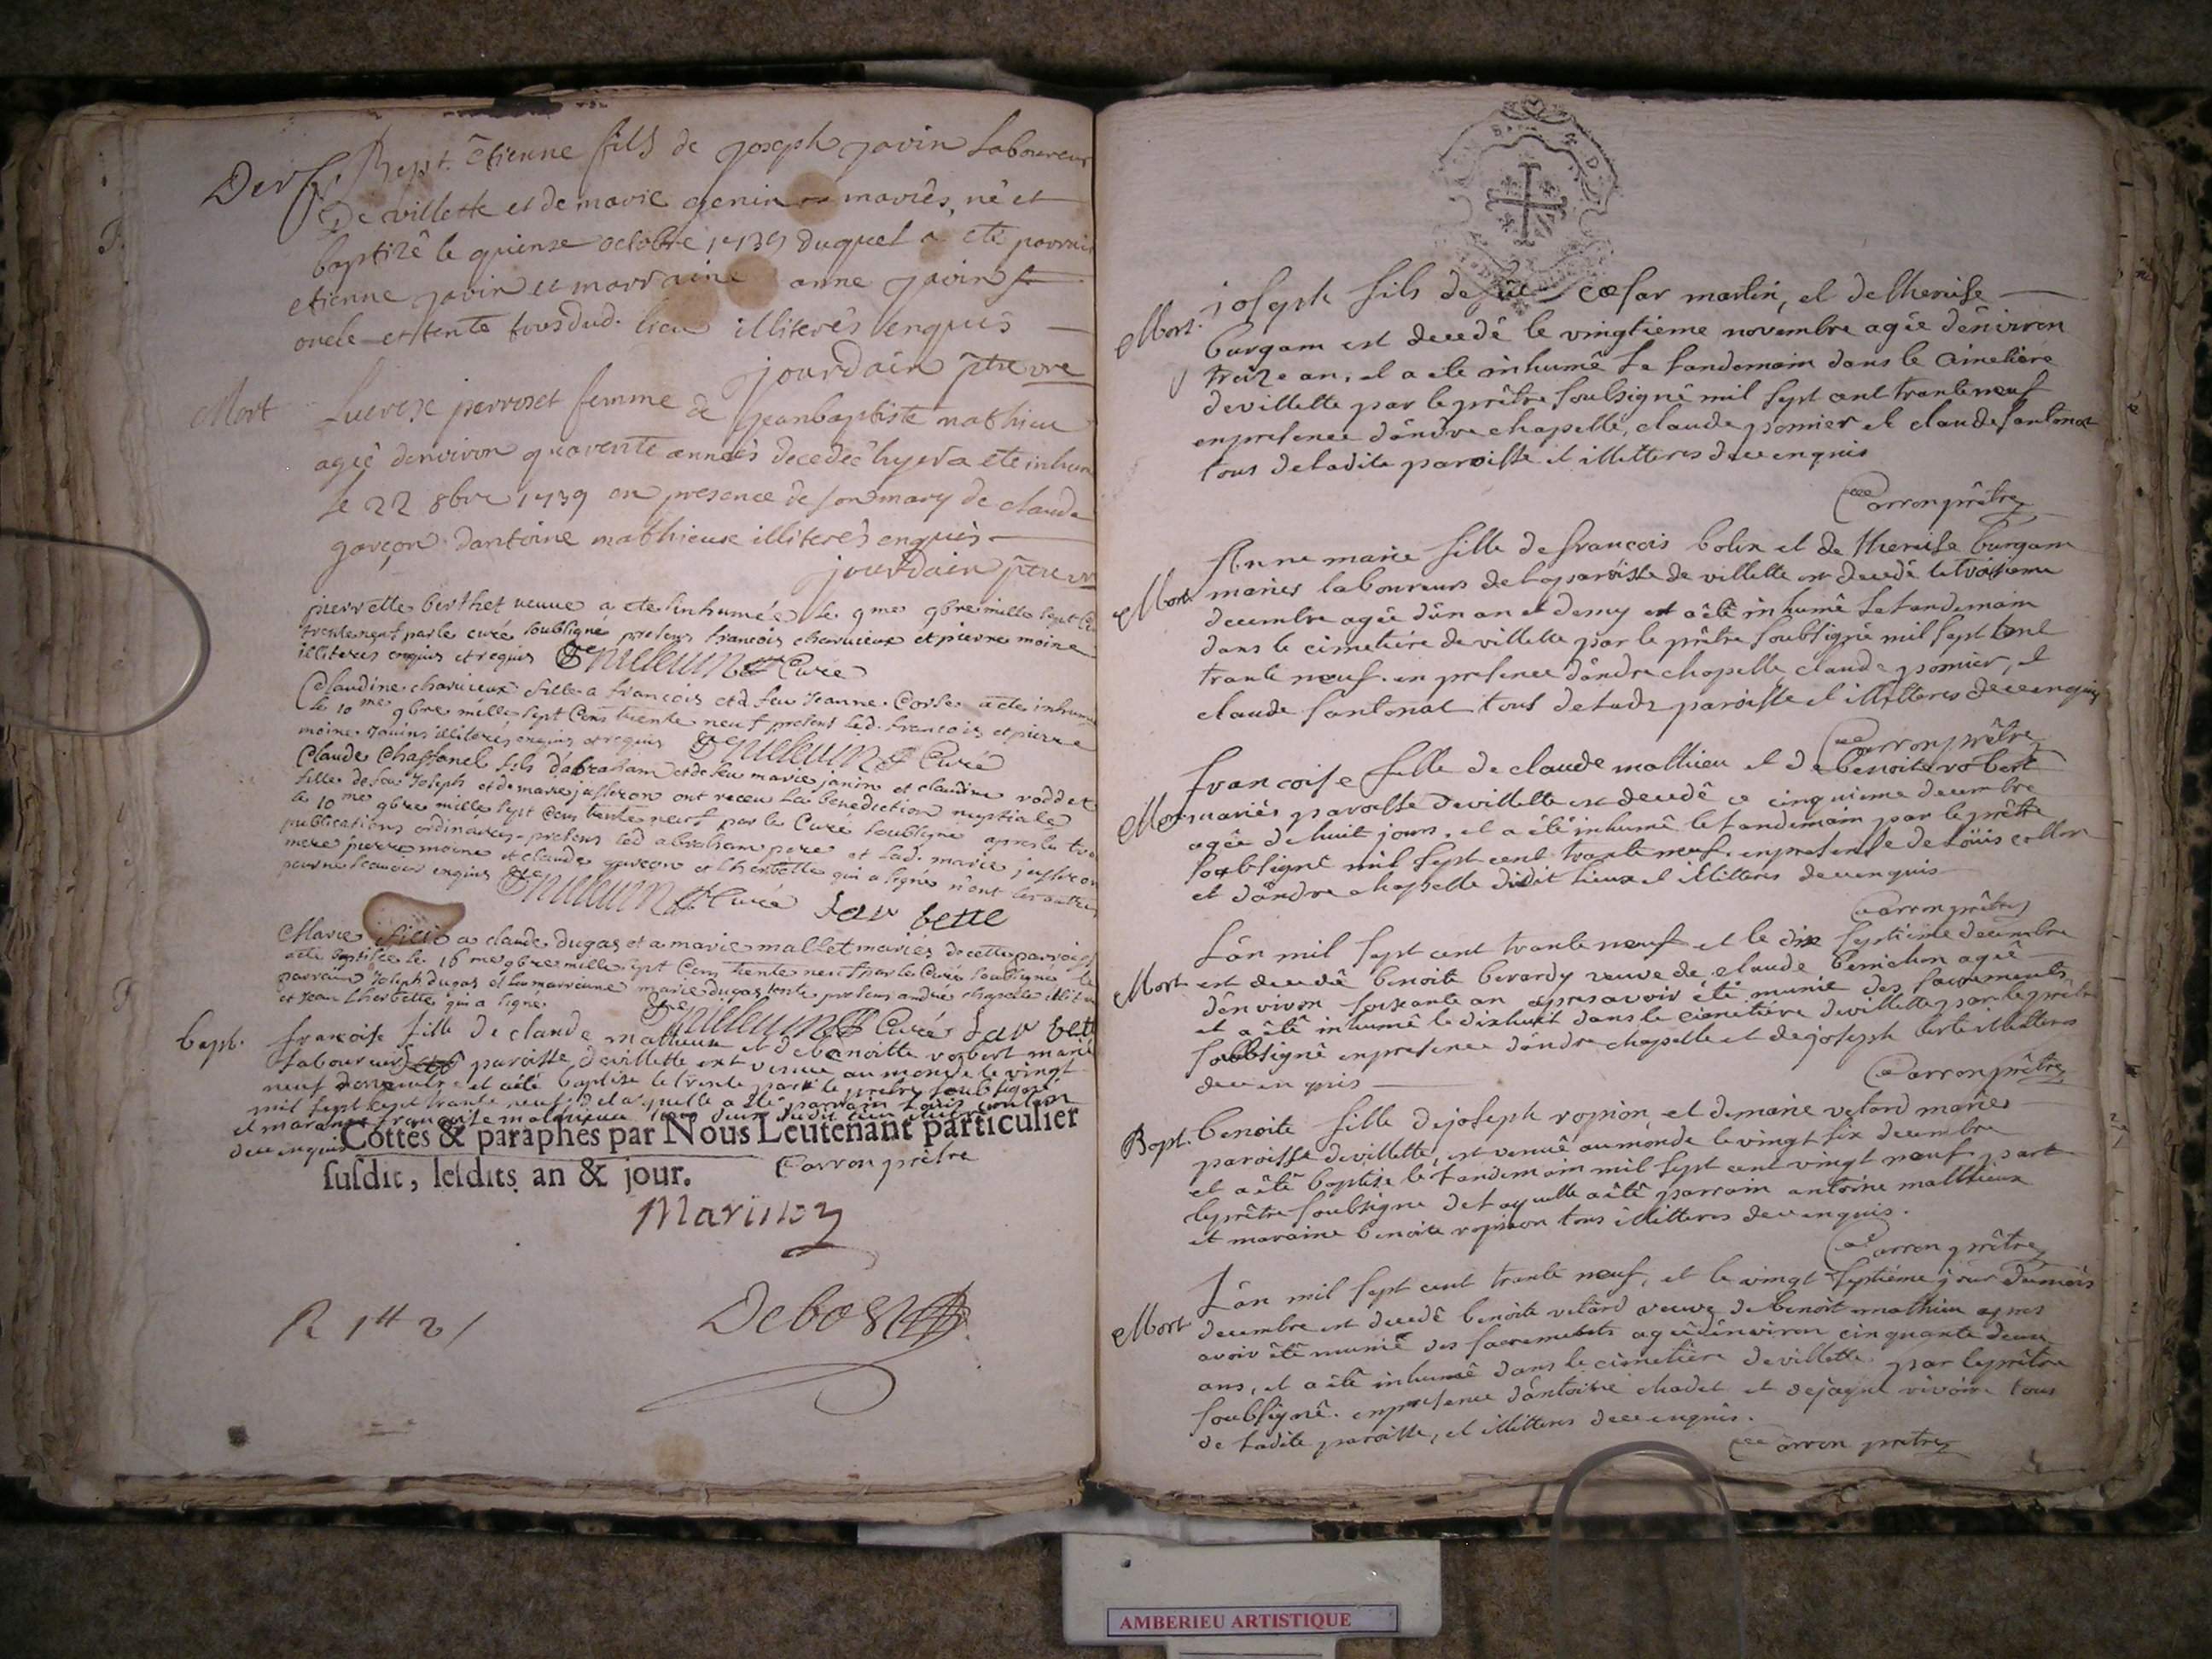 Bapt. êtienne fils de joseph javin Laboureur
De villette et de marie genin mariês, nê et
baptizê le quiense octobre 1739 duquel a etê parrain
etienne javin et marraine anne javin
oncle et tente tousdud. lieu illiterês enquis
jourdain ptre vre
Mort Lucresse perroset femme de jeanbaptiste mathieu
agêe denviron quarente années decedêe hyer a ete inhum
le 22 8bre 1739 en presence de son mary de claude
garçon dantoine mathieux illiterês enquis
jourdain ptre
pierrette berthet veuve a ete inhumée le 9me 9bre mille sept
trenteneuf par le curé soubsigné presens francois charvieux et pierre moine
illiteres enquis et requis Curé
Claudine charvieux fille a francois et a feu Jeanne Corse a ete inhumé
le 10me 9bre mille sept Cens trente neuf presens led. francois et pierre
moine illiterés enquis et requis Curé
Claude Chastanel fils d'abraham et de feu marie janin et claudine roddet
fille de feu Joseph et de marie justeron ont receu La benediction nuptiale
le 10me 9bre mille sept Cens trente neuf par le Curé soubsigné apres les
publications ordinaires presens led abraham pere et lad. marie
mere pierre moine et claude garçon et Lherbette qui a signé n'ont
pour ne scavoir enquis Curé
Marie a claude dugas et a marie mallet mariés de cette parroisse
a ete baptisée le 16me 9bre mille sept Cens trente neuf par le Curé soubsigné
parrain Joseph dugas et sa marreine marie dugas tente presens andré chapelle
et Jean Lherbette qui a signé.
Curé
bapt. françoise fille de claude mathieux et de benoitte robert marié
Laboureur paroisse de villette ext venue au monde le vingt
neuf et a été baptise le trente par le pretre soubsigné
mil sept cent trante neuf. de laquelle a été parrain Louis
et maraine françoise
de ce enquis
Cottés & paraphés par Nous Leutenant particulier
susdit, lesdits an & jour.
Carron prêtre
Debost
Mort. joseph fils de feu cæsar martin, et de therese
burgam est decedê le vingtieme novembre agée dênviron
treize an, et a ete inhumê le landemain dans le cimetiere
de villette par le prêtre soubsignê mil sept cent trante neuf
en presence dândre chapelle, claude pomier et claude santonat
tous de ladite paroisse et illitteres de ce enquis
Carron prêtre
Mort Anne marie fille de françois bolex et de therese burgam
mariés laboureurs de la paroisse de villette est decedé le troisieme
decembre agée dûn an et demy et a êtê inhumê le landemain
dans le cimetiére de villette par le prêtre soubsigné mil sept cent
trante neuf. en presence dândre chapelle claude pomier, et
claude santonat tous de ladite paroisse et illitteres de ce enquis
Carron prêtre
Mort françoise fille de claude mathieu et de benoite robert
mariés paroisse de villette est decedê ce cinquieme decembre
agée de huit jours, et a été inhumê le landemain par le prêtre
soubsignê mil sept cent trante neuf. en presence de Loüis collon
et dândre chapelle dudit lieux et illitteres de ce enquis
Carron prêtre
Mort Lân mil sept cent trante neuf et le dix septiéme decembre
est decedê benoite berardy veuve de claude benichon agée
dênviron soixante an apres avoir été munie des sacrements
et a êtê inhumê le dixhuit dans le cimetiére de villette par le prêtre
soubsignê en presence dândre chapelle et de joseph illitteres
de ce enquis
Carron prêtre
Bapt. benoite fille de joseph ropion, et de marie velard mariés
paroisse de villette, est venuë au monde le vingt six decembre
et a êtê baptise le landemain mil sept cent vingt neuf part
le prêtre soubsigne de laquelle a êtê parrain antoine mathieux
et maraine benoite ropion tous illitteres de ce enquis.
Carron prêtre
Mort Lân mil sept cent trante neuf, et le vingt septiéme jour du mois
decembre est decedê benoite velârd veuve de benoit mathieu apres
avoir été munie des sacrements agée dênviron cinquante deux
ans, et a êtê inhumê dans le cimetiére de villette par le prêtre
soubsignê. en presence dântoine chadet et de jaque vivoire tous
de ladite paroisse, et illitteres de ce enquis.
Carron prêtre
AMBERIEU ARTISTIQUE